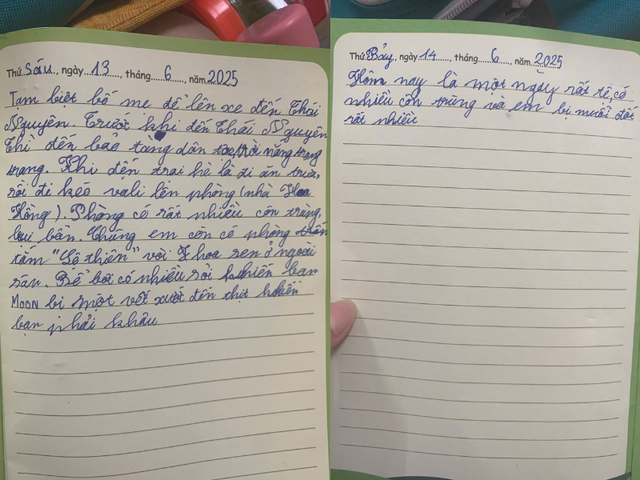 Thứ Sáu, ngày 13, tháng 6, năm 2025
Tạm biệt bố mẹ để lên xe đến Thái
Nguyên. Trước khi đến Thái Nguyên
thì đến bảo tàng dân tộc trời nắng trang
trang. Khi đến trại hè là đi ăn trưa,
rồi đi kéo vali lên phòng (nhà Hoa
Hồng). Phòng có rất nhiều côn trùng,
bụi bẩn. Chúng em còn có phòng tắm
tắm "Lộ thiên" với 7 hoa sen ở ngoài
sân. Bể bơi có nhiều rơi khiến bạn
MOON bị một vết xướt đến thịt khiến
bạn phải khâu
Thứ Bảy, ngày 14, tháng 6, năm 2025
Hôm nay là một ngày rất tệ, có
nhiều côn trùng và em bị muỗi đốt
rất nhiều